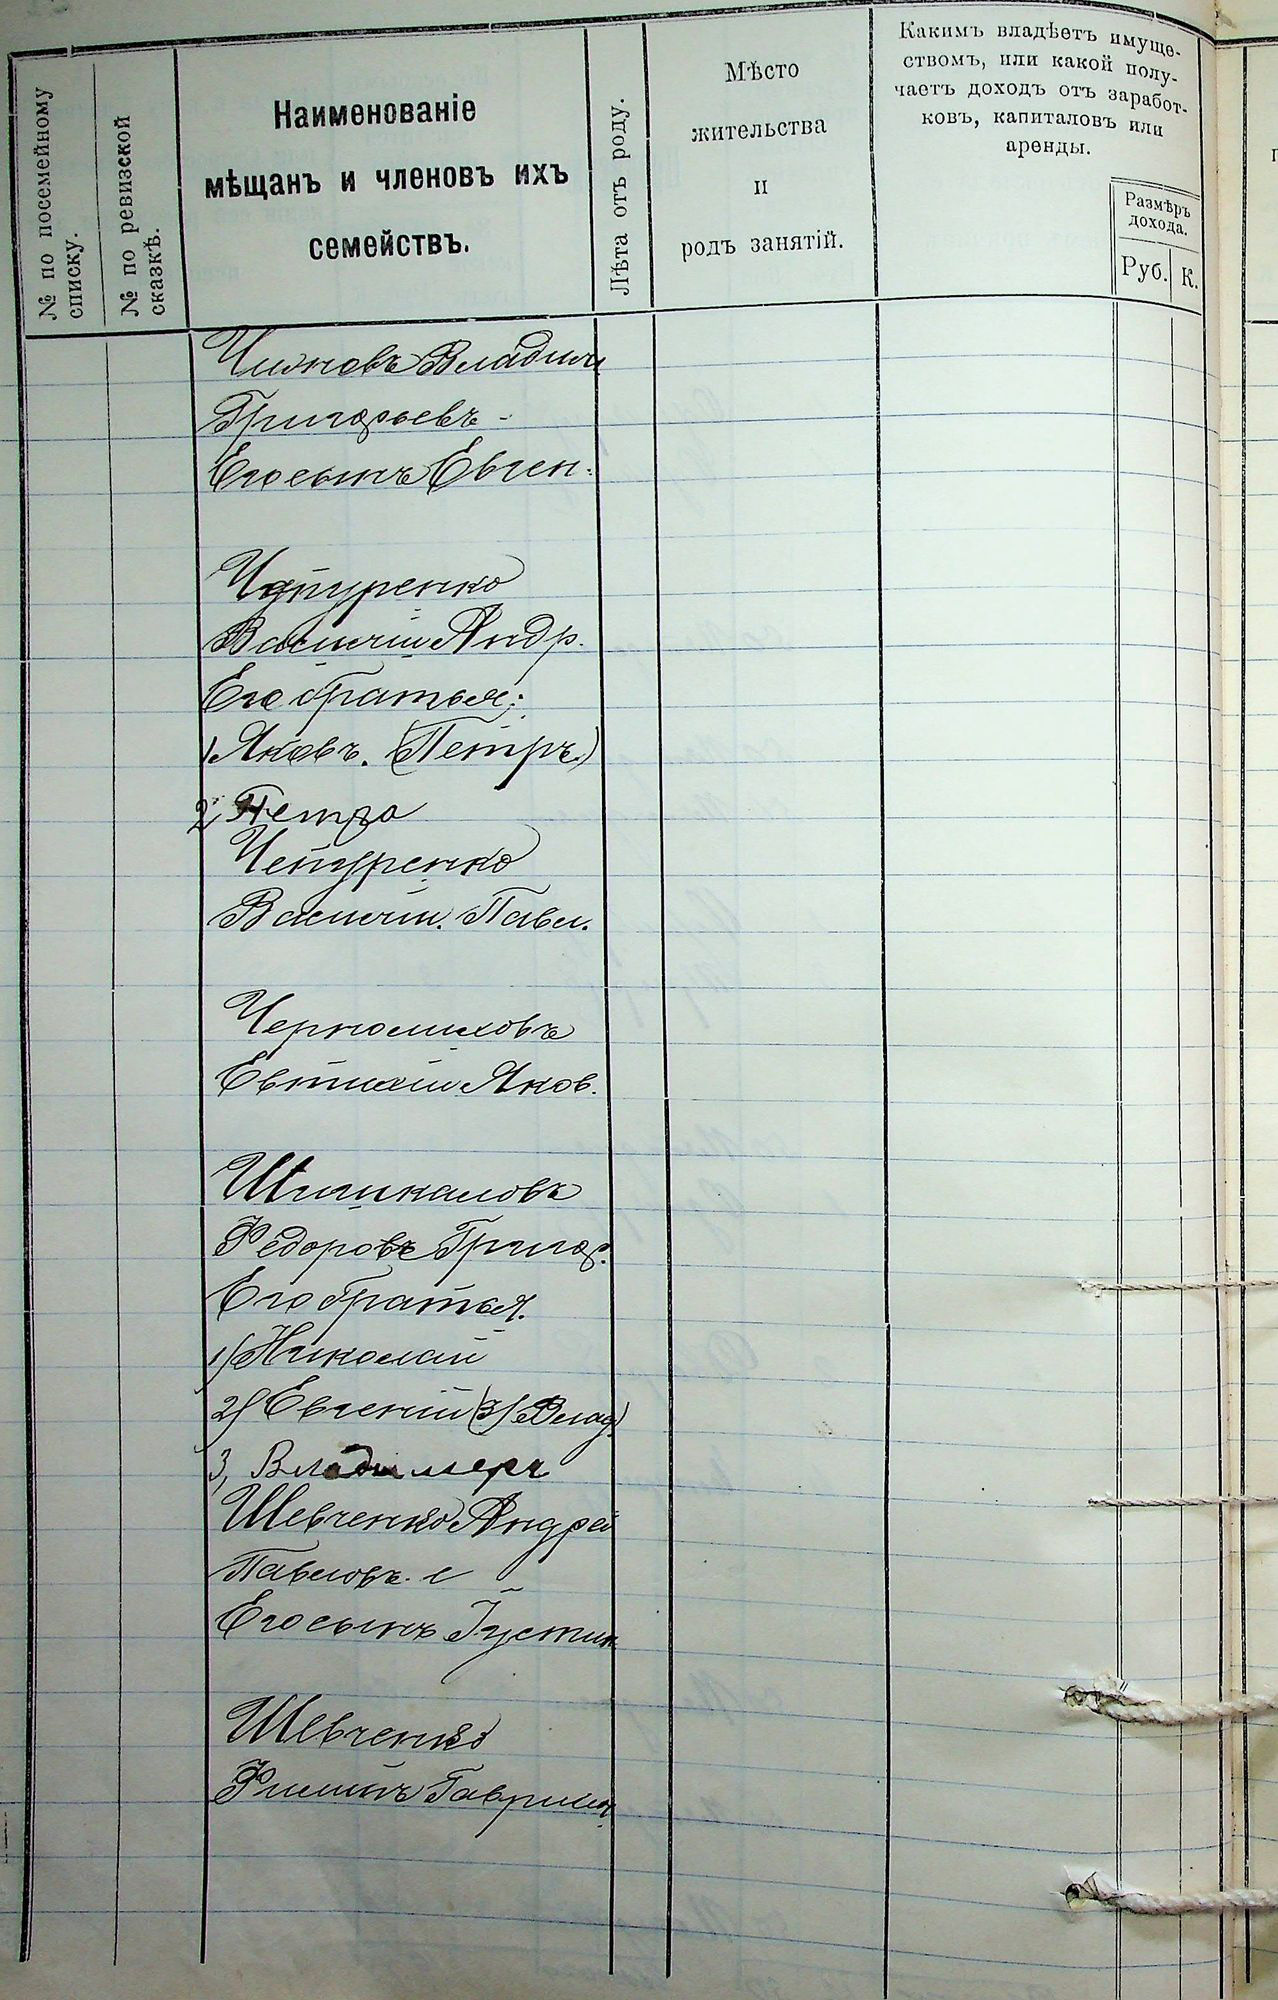 № по посемейному
списку.
№ по ревизской
сказкѣ.
Наименованіе
мѣщанъ и членовъ ихъ
семействъ.
Лѣта отъ роду.
Мѣсто
жительства
и
родъ занятій.
Какимъ владѣетъ имуще-
ствомъ, или какой полу-
чаетъ доходъ отъ заработ-
ковъ, капиталовъ или
аренды.
Размѣръ
дохода.
Руб.
К.
Чижовъ Владим.
Григорьевъ -
Его сынъ Евген.
Чепуренко
Василій Андр.
Его братья:
1) Яковъ. (Петръ.)
2, Петро
Чепуренко
Василій. Павл.
Евтихій Яков.
Шишкаловъ
Федоровъ Григор.
Его братья.
1) Николай
2) Евгеній (3) Влад)
3, Владимеръ
Шевченко Андрей
Павловъ.
Его сынъ Іустин
Шевченко
Филипъ Гаврилов.